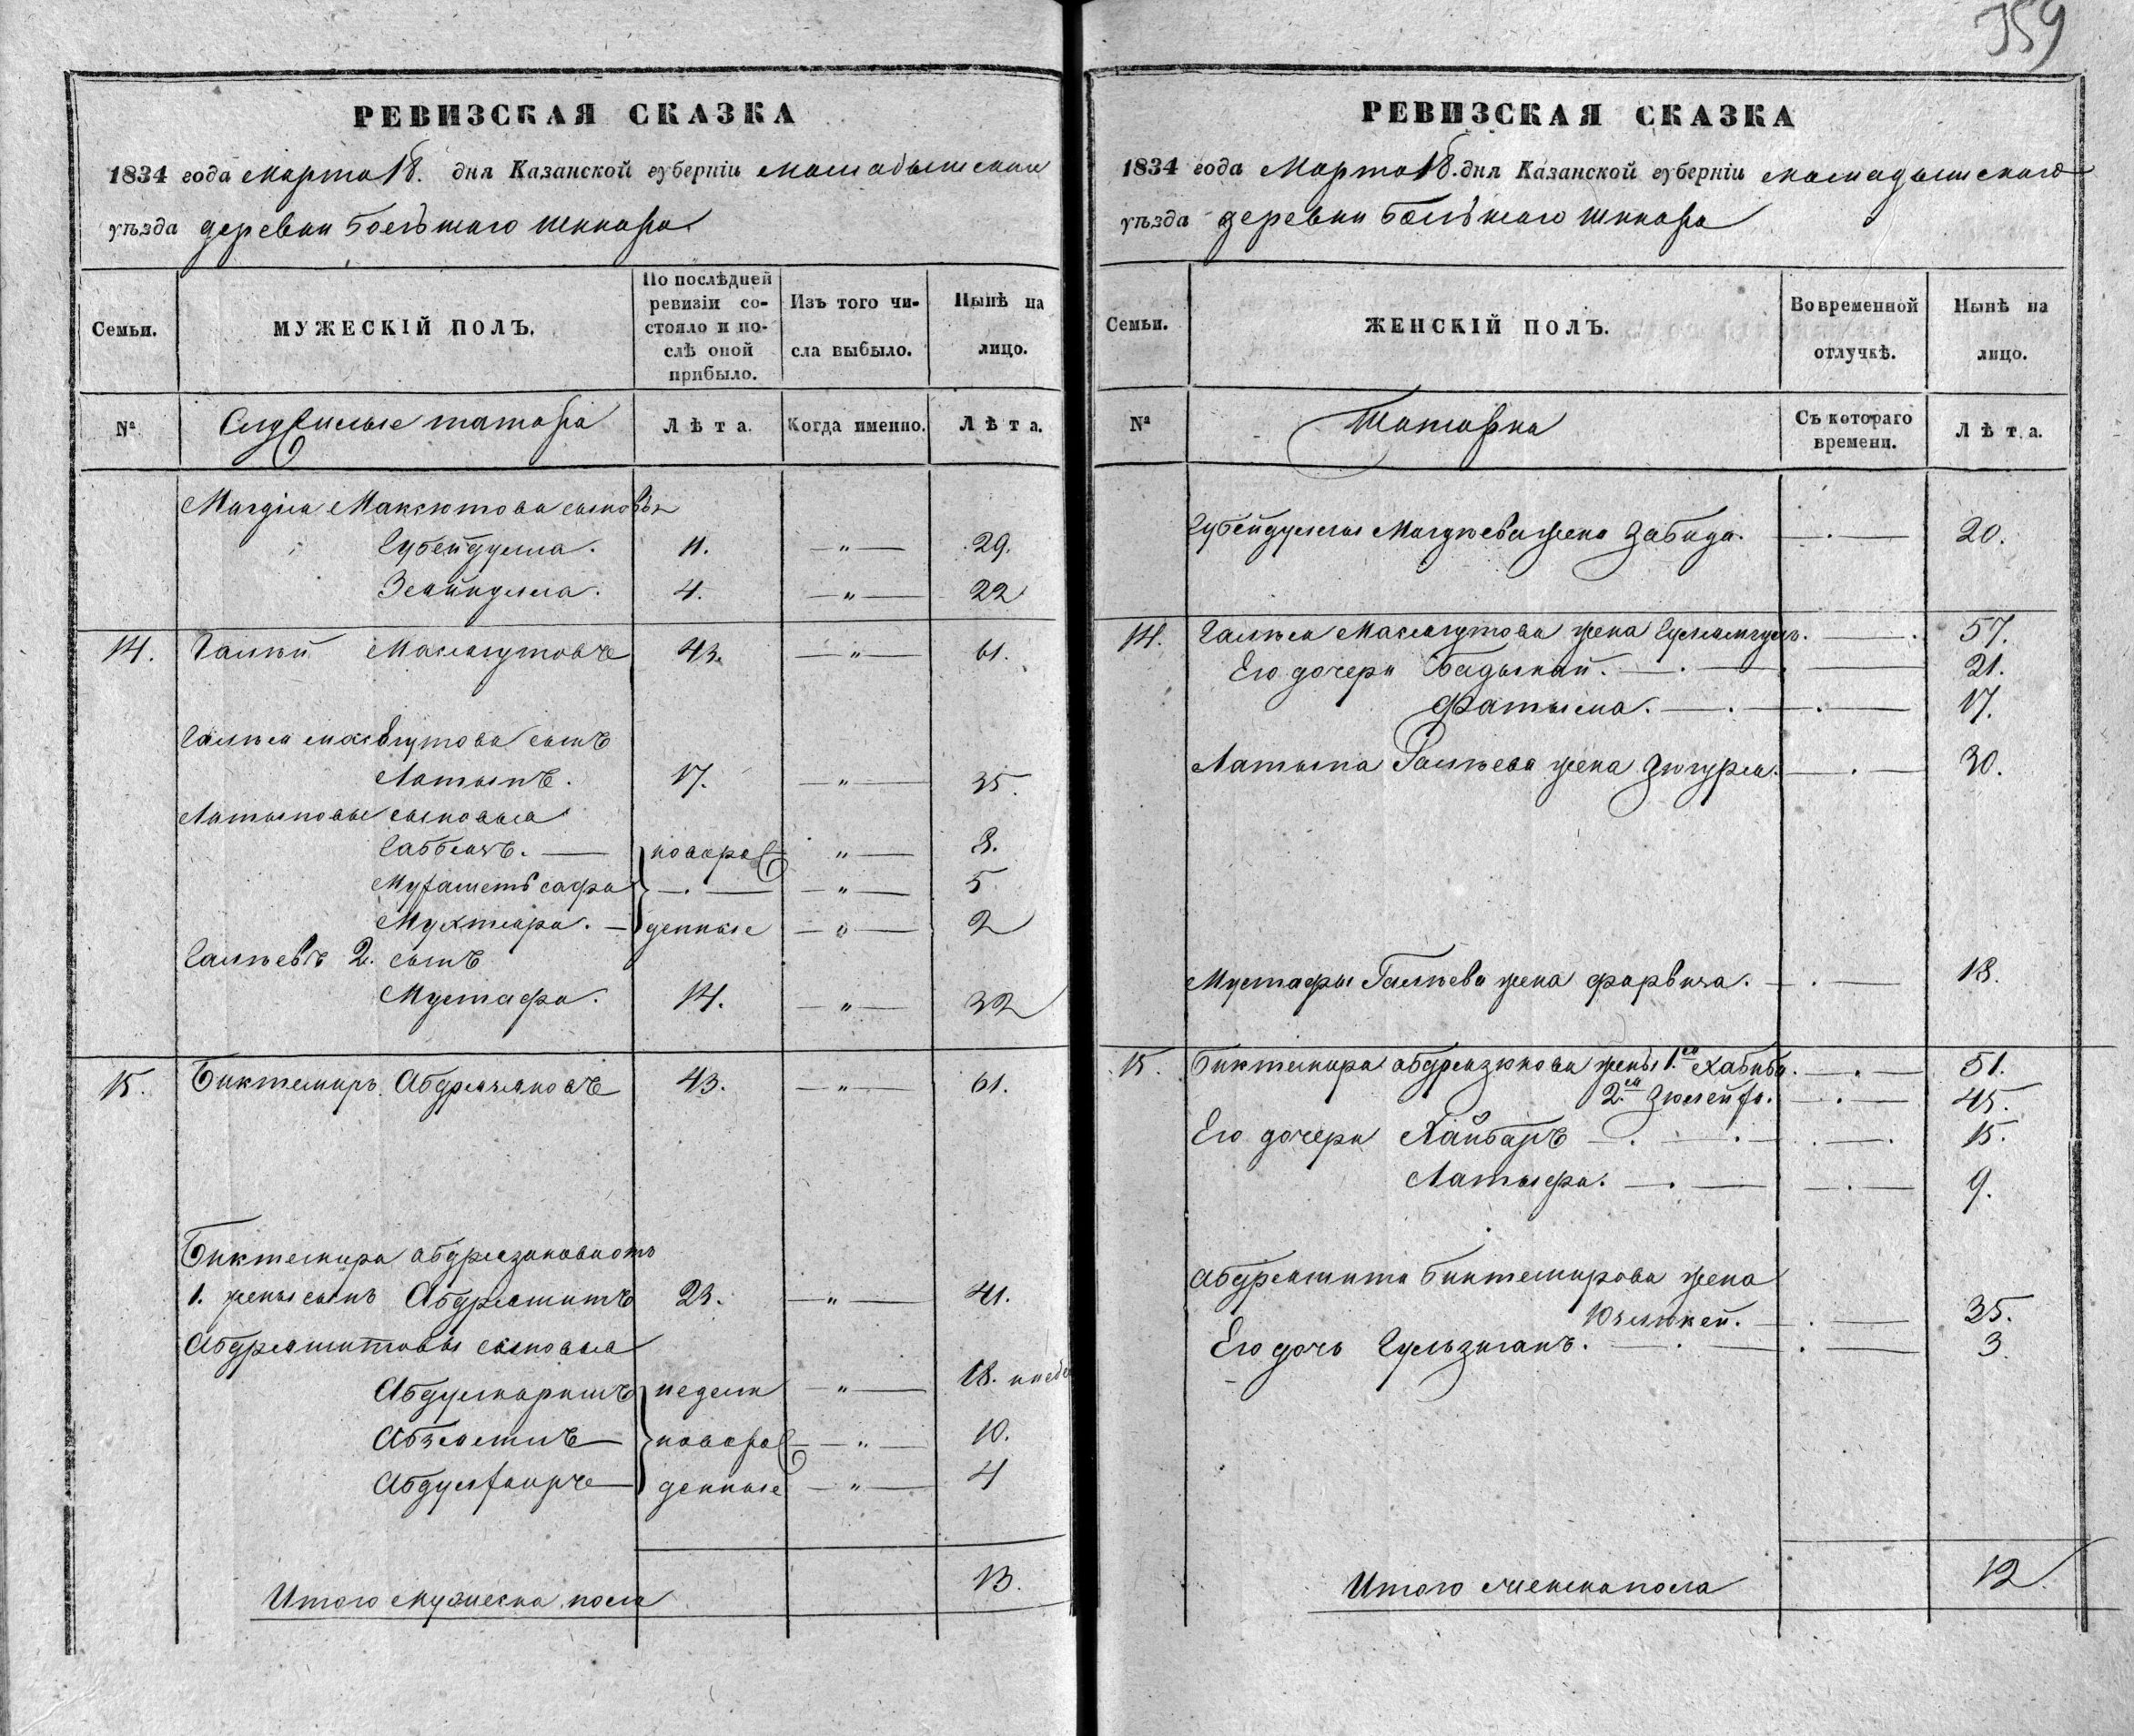 359
РЕВИЗСКАЯ СКАЗКА
1834 года Марта 18. дня Казанской губерніи мамадышскаго
уѣзда деревни Большаго Шинара
Семьи.
МУЖЕСКІЙ ПОЛЪ.
По послѣдней ревизіи состояло и послѣ оной прибыло.
Изъ того числа выбыло.
Нынѣ на лицо.
№
татара
Лѣта.
Когда именно.
Лѣта.
Магдиа Максютова сыновья
Губейдулла. 11. — " — 29.
Зейнулла. 4. — " — 22
14. Галѣй Максютовъ 43. — " — 61.
Галѣя максютова сынъ
Латыпъ. 17. — " — 35.
Латыповы сыновья
Габбясъ. — новоро — " — 8.
Мухаметъ сафа — . — — " — 5.
Мухтара. — жденные — " — 2
Галѣевъ 2. сынъ
Мустафа. 14. — " — 32
15. Биктемиръ Абдрязяковъ 43. — " — 61.
Биктемира абдрязякова отъ
1. жены сынъ Абдряшитъ 23. — " — 41.
Абдряшитовы сыновья
Абдулкаримъ недели — " — 18.
— новоро — " — 10.
Абдулхаиръ — жденные — " — 4
Итого мужеска пола 13.
РЕВИЗСКАЯ СКАЗКА
1834 года Марта 18. дня Казанской губерніи мамадышскаго
уѣзда деревни Большаго Шинара
Семьи.
ЖЕНСКІЙ ПОЛЪ.
Во временной отлучкѣ.
Нынѣ на лицо.
№
Татарка
Съ котораго времени.
Лѣта.
Губейдуллы Магдиева жена Забида. — . — 20.
14. Галѣя Максютова жена — . 57.
Его дочери Бадыгый. — . — 21.
Фатыма. — . — . — 17.
Латыпа Галѣева жена Зюгура. — . — 30.
Мустафы Галѣева жена фарвиза. — . — 18.
15. Биктемира абдрязякова жены 1.ая Хабиба. — . — 51.
2.ая Зюлейха. — . — 45.
Его дочери Хайбаръ — . — . — . — . 15.
Латыфа. — . — — . — 9.
Абдряшита Биктемирова жена
Юзликей. — . — 35.
Его дочь Гульзиганъ. — . — . — 3
Итого женска пола 12.